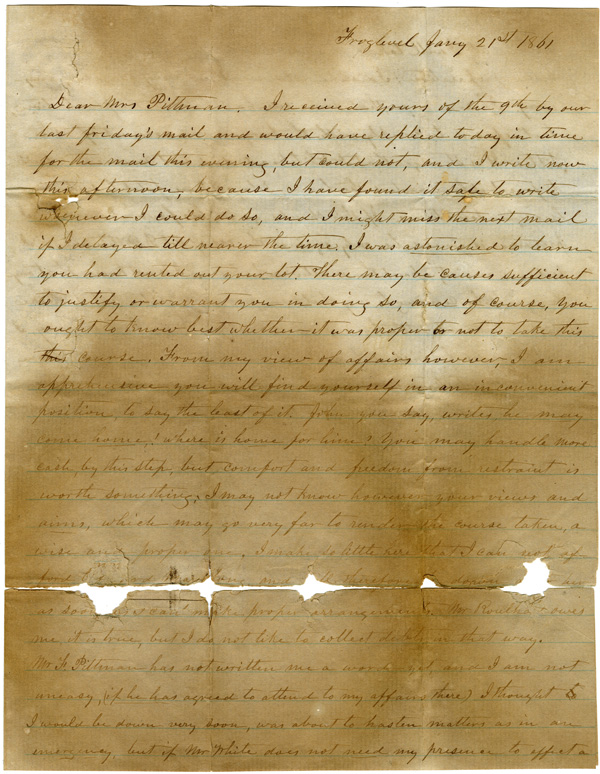 Froglevel Jany 21st 1861
Dear Mrs Pittman. I received yours of the 9th by our
last friday's mail and would have replied to day in time
for the mail this evening, but could not, and I write now
this afternoon, because I have found it safe to write
whenever I could do so, and I might miss the next mail
if I delayed till nearer the time. I was astonished to learn
you had rented out your lot. There may be causes sufficient
to justify or warrant you in doing so, and of course, you
ought to know best whether it was proper or not to take this
course. From my view of affairs however, I am
apprehensive you will find yourself in an inconvenient
position, to say the least of it. John you say, writes he may
come home! where is home for him? You may handle more
cash, by this step, but comfort and freedom from restraint is
worth something. I may not know however your views and
aims, which may go very far to render the course taken, a
wise and proper one. I make so little here that I can not af
and therefore down
as soon as I can make proper arrangements. Mr owes
me it is true, but I do not like to collect debts in that way.
Mr Pittman has not written me a word yet, and I am not
uneasy, (if he has agreed to attend to my affairs there) I thought
I would be down very soon, was about to hasten matters as in an
emergency, but if Mr White does not need my presence to effect a